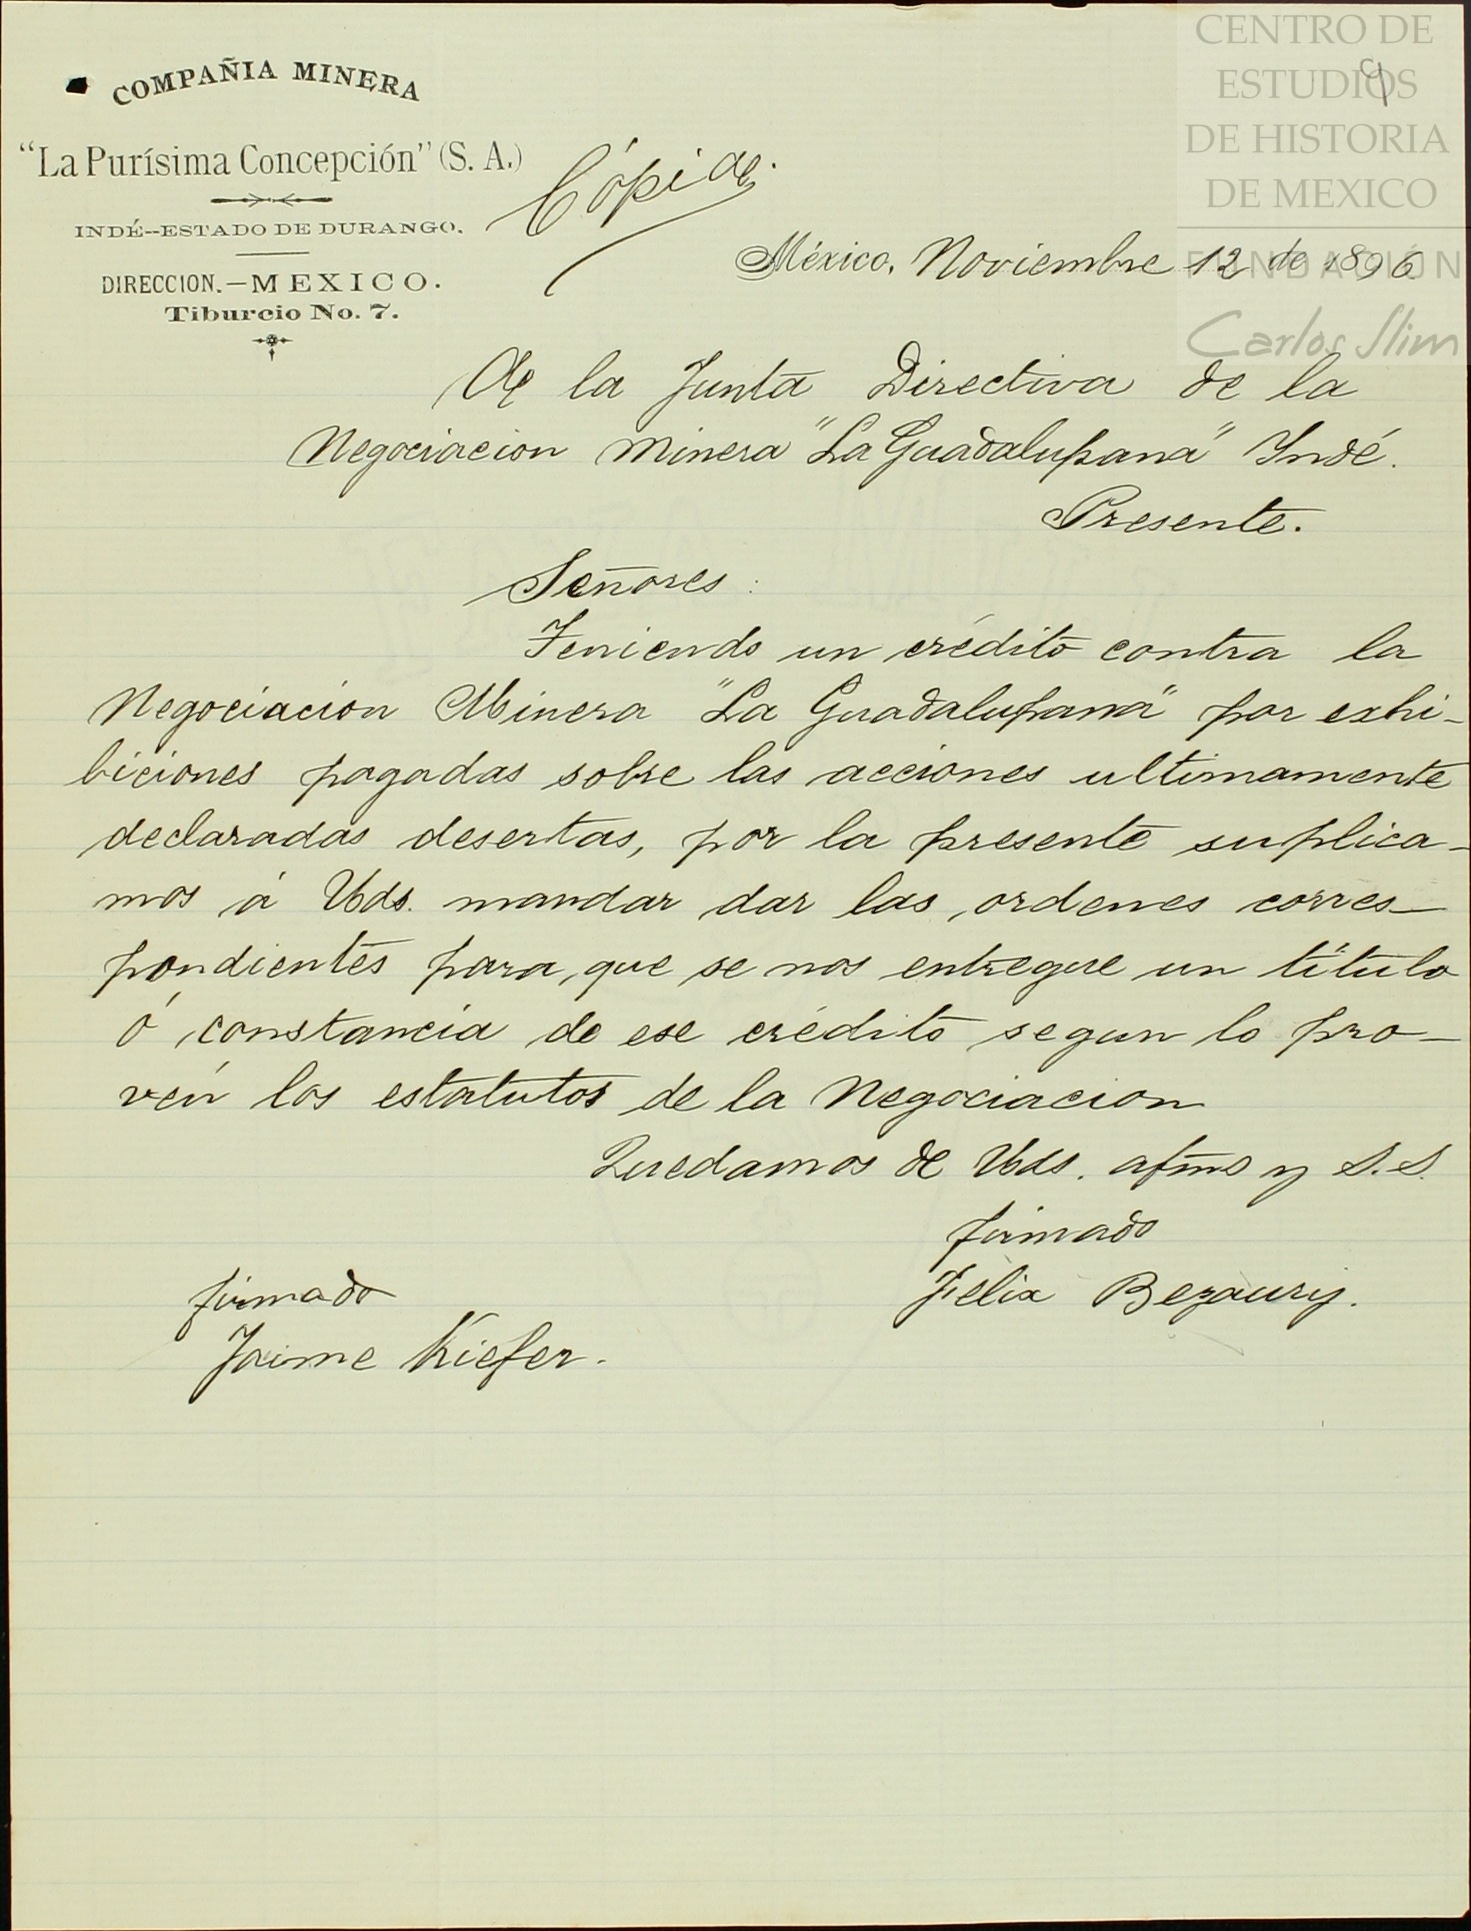 COMPAÑIA MINERA
"La Purísima Concepción" (S. A.)
INDÉ--ESTADO DE DURANGO.
DIRECCION.—MEXICO.
Tiburcio No. 7.
Cópia.
CENTRO DE
ESTUDIOS
DE HISTORIA
DE MEXICO
FUNDACIÓN
Carlos Slim
9
México, Noviembre 12 de 1896
A la Junta Directiva de la
Negociacion Minera "La Guadalupana" Indé.
Presente.
Señores:
Teniendo un crédito contra la
Negociacion Minera "La Guadalupana" por exhi-
biciones pagadas sobre las acciones ultimamente
declaradas desertas, por la presente suplica-
mos á Uds. mandar dar las ordenes corres-
pondientes para que se nos entregue un título
ó constancia de ese crédito segun lo pro-
veén los estatutos de la Negociacion
Quedamos de Uds. afmo y S.S.
firmado
Felix Bezaury.
firmado
Jaime Kiefer.